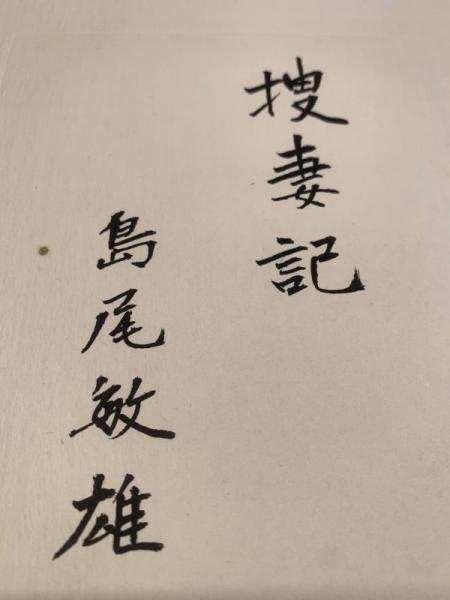 捜妻記
島尾敏雄